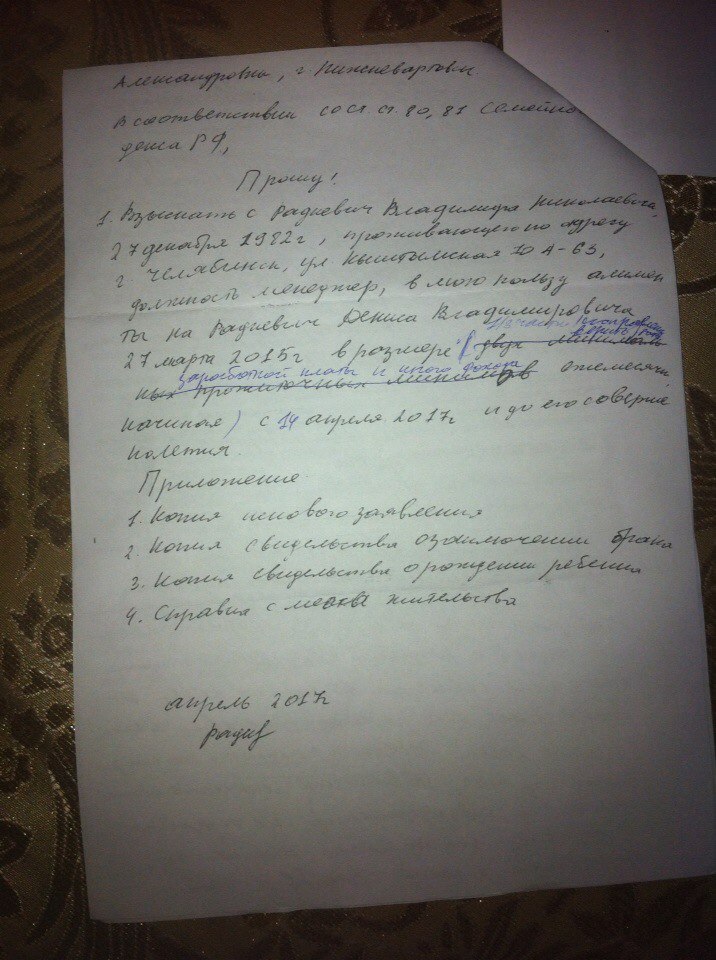 Александровна, г. Нижневартовск
В соответствии со ст. ст. 80, 81 Семейно
декса РФ,
Прошу!
1. Взыскать с Радкевич Владимира Николаевича,
27 декабря 1982г, проживающего по адресу
г Челябинск, ул Кыштымская 10 А-63,
должность менеджер, в мою пользу алимен
ты на Радкевич Дениса Владимировича
1/4 части
27 марта 2015г в размере (двух минималь
заработной платы и иного дохода
ных прожиточных минимумов ежемесячн
начиная) с 14 апреля 2017г и до его соверше
нолетия.
Приложение
1. Копия искового заявления
2. Копия свидельства о заключении брака
3. Копия свидельства о рождении ребенка
4. Справка с места жительства
апрель 2017г